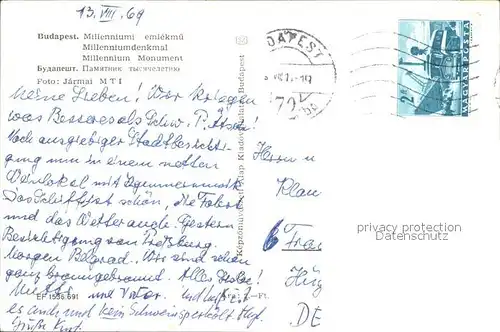 13. VIII. 69
Budapest. Millenniumi emlékmű
Millenniumdenkmal
Millennium Monument
Будапешт. Памятник тысячелетию
Foto: Jármai MTI
Meine Lieben! Wir kriegen
was Besseres als Schw. P.
Nach ausgiebiger Stadtbesichti-
gung nun in einem netten
Weinlokal mit Zigeunermusik
Das Schiff ist schön, die Fahrt
und das Wetter auch. Gestern
Besichtigung von Pressburg.
Morgen Belgrad. Wir sind schon
ganz braungebrannt. Alles Liebe!
Mutti und Vater.
es auch und kein
Grüße
Képzőművészeti Alap Kiadóvállalata, Budapest
BUDAPEST
72
2 Ft
MAGYAR POSTA
Herrn u
Klau
6 Fran
DE
privacy protection
Datenschutz